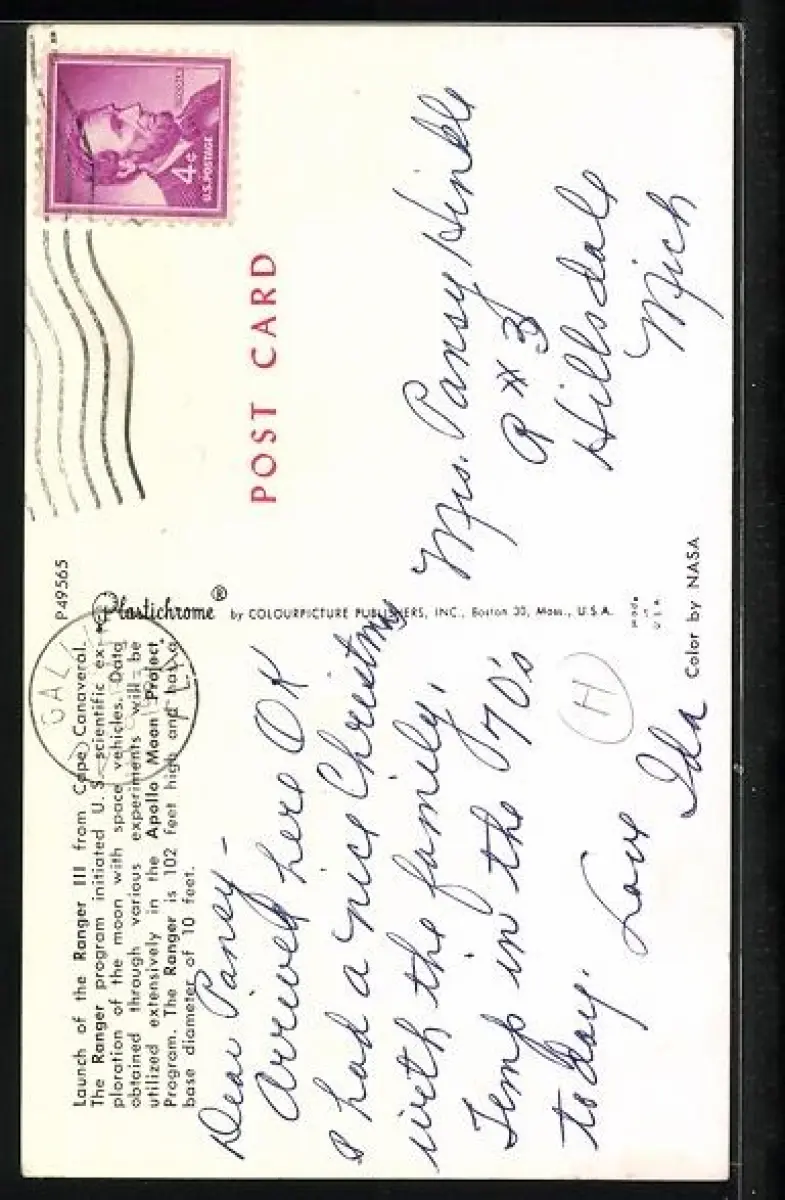 Launch of the Ranger III from Cape Canaveral.
The Ranger program initiated U. S. scientific ex-
ploration of the moon with space vehicles. Data
obtained through various experiments will be
utilized extensively in the Apollo Moon Project
Program. The Ranger is 102 feet high and has a
base diameter of 10 feet.
P49565
Plastichrome ® by COLOURPICTURE PUBLISHERS, INC., Boston 30, Mass., U.S.A.
Dear Pansy -
Arrived here OK
I had a nice Christmas
with the family.
Temp in the 70's
today.
Love Ida
H
Color by NASA
POST CARD
4¢
U.S. POSTAGE
LINCOLN
Mrs. Pansy Hinkle
R # 3
Hillsdale
Mich